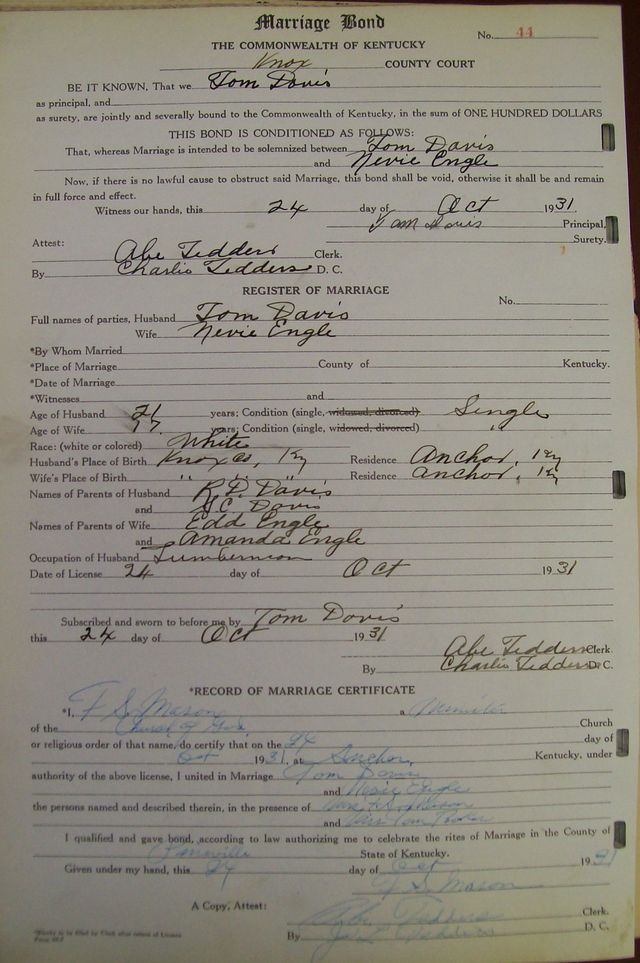 Marriage Bond
No. 44
THE COMMONWEALTH OF KENTUCKY
Knox COUNTY COURT
BE IT KNOWN, That we Tom Davis
as principal, and
as surety, are jointly and severally bound to the Commonwealth of Kentucky, in the sum of ONE HUNDRED DOLLARS
THIS BOND IS CONDITIONED AS FOLLOWS:
That, whereas Marriage is intended to be solemnized between Tom Davis
and Nevie Engle
Now, if there is no lawful cause to obstruct said Marriage, this bond shall be void, otherwise it shall be and remain
in full force and effect.
Witness our hands, this 24 day of Oct 1931
Tom Davis Principal,
Surety.
Attest:
Abe Tedders Clerk.
By Charlie Tedders D. C.
REGISTER OF MARRIAGE
No.
Full names of parties, Husband Tom Davis
Wife Nevie Engle
*By Whom Married
*Place of Marriage County of Kentucky.
*Date of Marriage
*Witnesses and
Age of Husband 21 years; Condition (single, widowed, divorced) Single
Age of Wife 17 years; Condition (single, widowed, divorced) "
Race: (white or colored) White
Husband's Place of Birth Knox Co, Ky Residence Anchor, Ky
Wife's Place of Birth " " " Residence Anchor, Ky
Names of Parents of Husband R.D. Davis
and G.C. Davis
Names of Parents of Wife Edd Engle
and Amanda Engle
Occupation of Husband Lumberman
Date of License 24 day of Oct 1931
Subscribed and sworn to before me by Tom Davis
this 24 day of Oct 1931
Abe Tedders Clerk
By Charlie Tedders D. C.
*RECORD OF MARRIAGE CERTIFICATE
*I, F S Mason a Minister
of the Church of God Church
or religious order of that name, do certify that on the 24 day of
Oct 1931, at Anchor, Kentucky, under
authority of the above license, I united in Marriage Tom Davis
and Nevie Engle
the persons named and described therein, in the presence of Mrs F S Mason
and Mrs Tom
I qualified and gave bond, according to law authorizing me to celebrate the rites of Marriage in the County of
State of Kentucky.
Given under my hand, this 24 day of Oct 1931
F S Mason
A Copy, Attest: Abe Tedders Clerk.
By Tedders D. C.